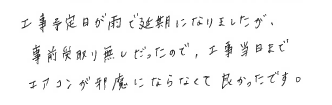 工事予定日が雨で延期になりましたが、
事前受取り無しだったので、工事当日まで
エアコンが邪魔にならなくて良かったです。